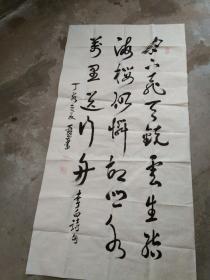 月下飛天鏡雲生結
海樓仍憐故鄉水
萬里送行舟
李白詩句
丁亥